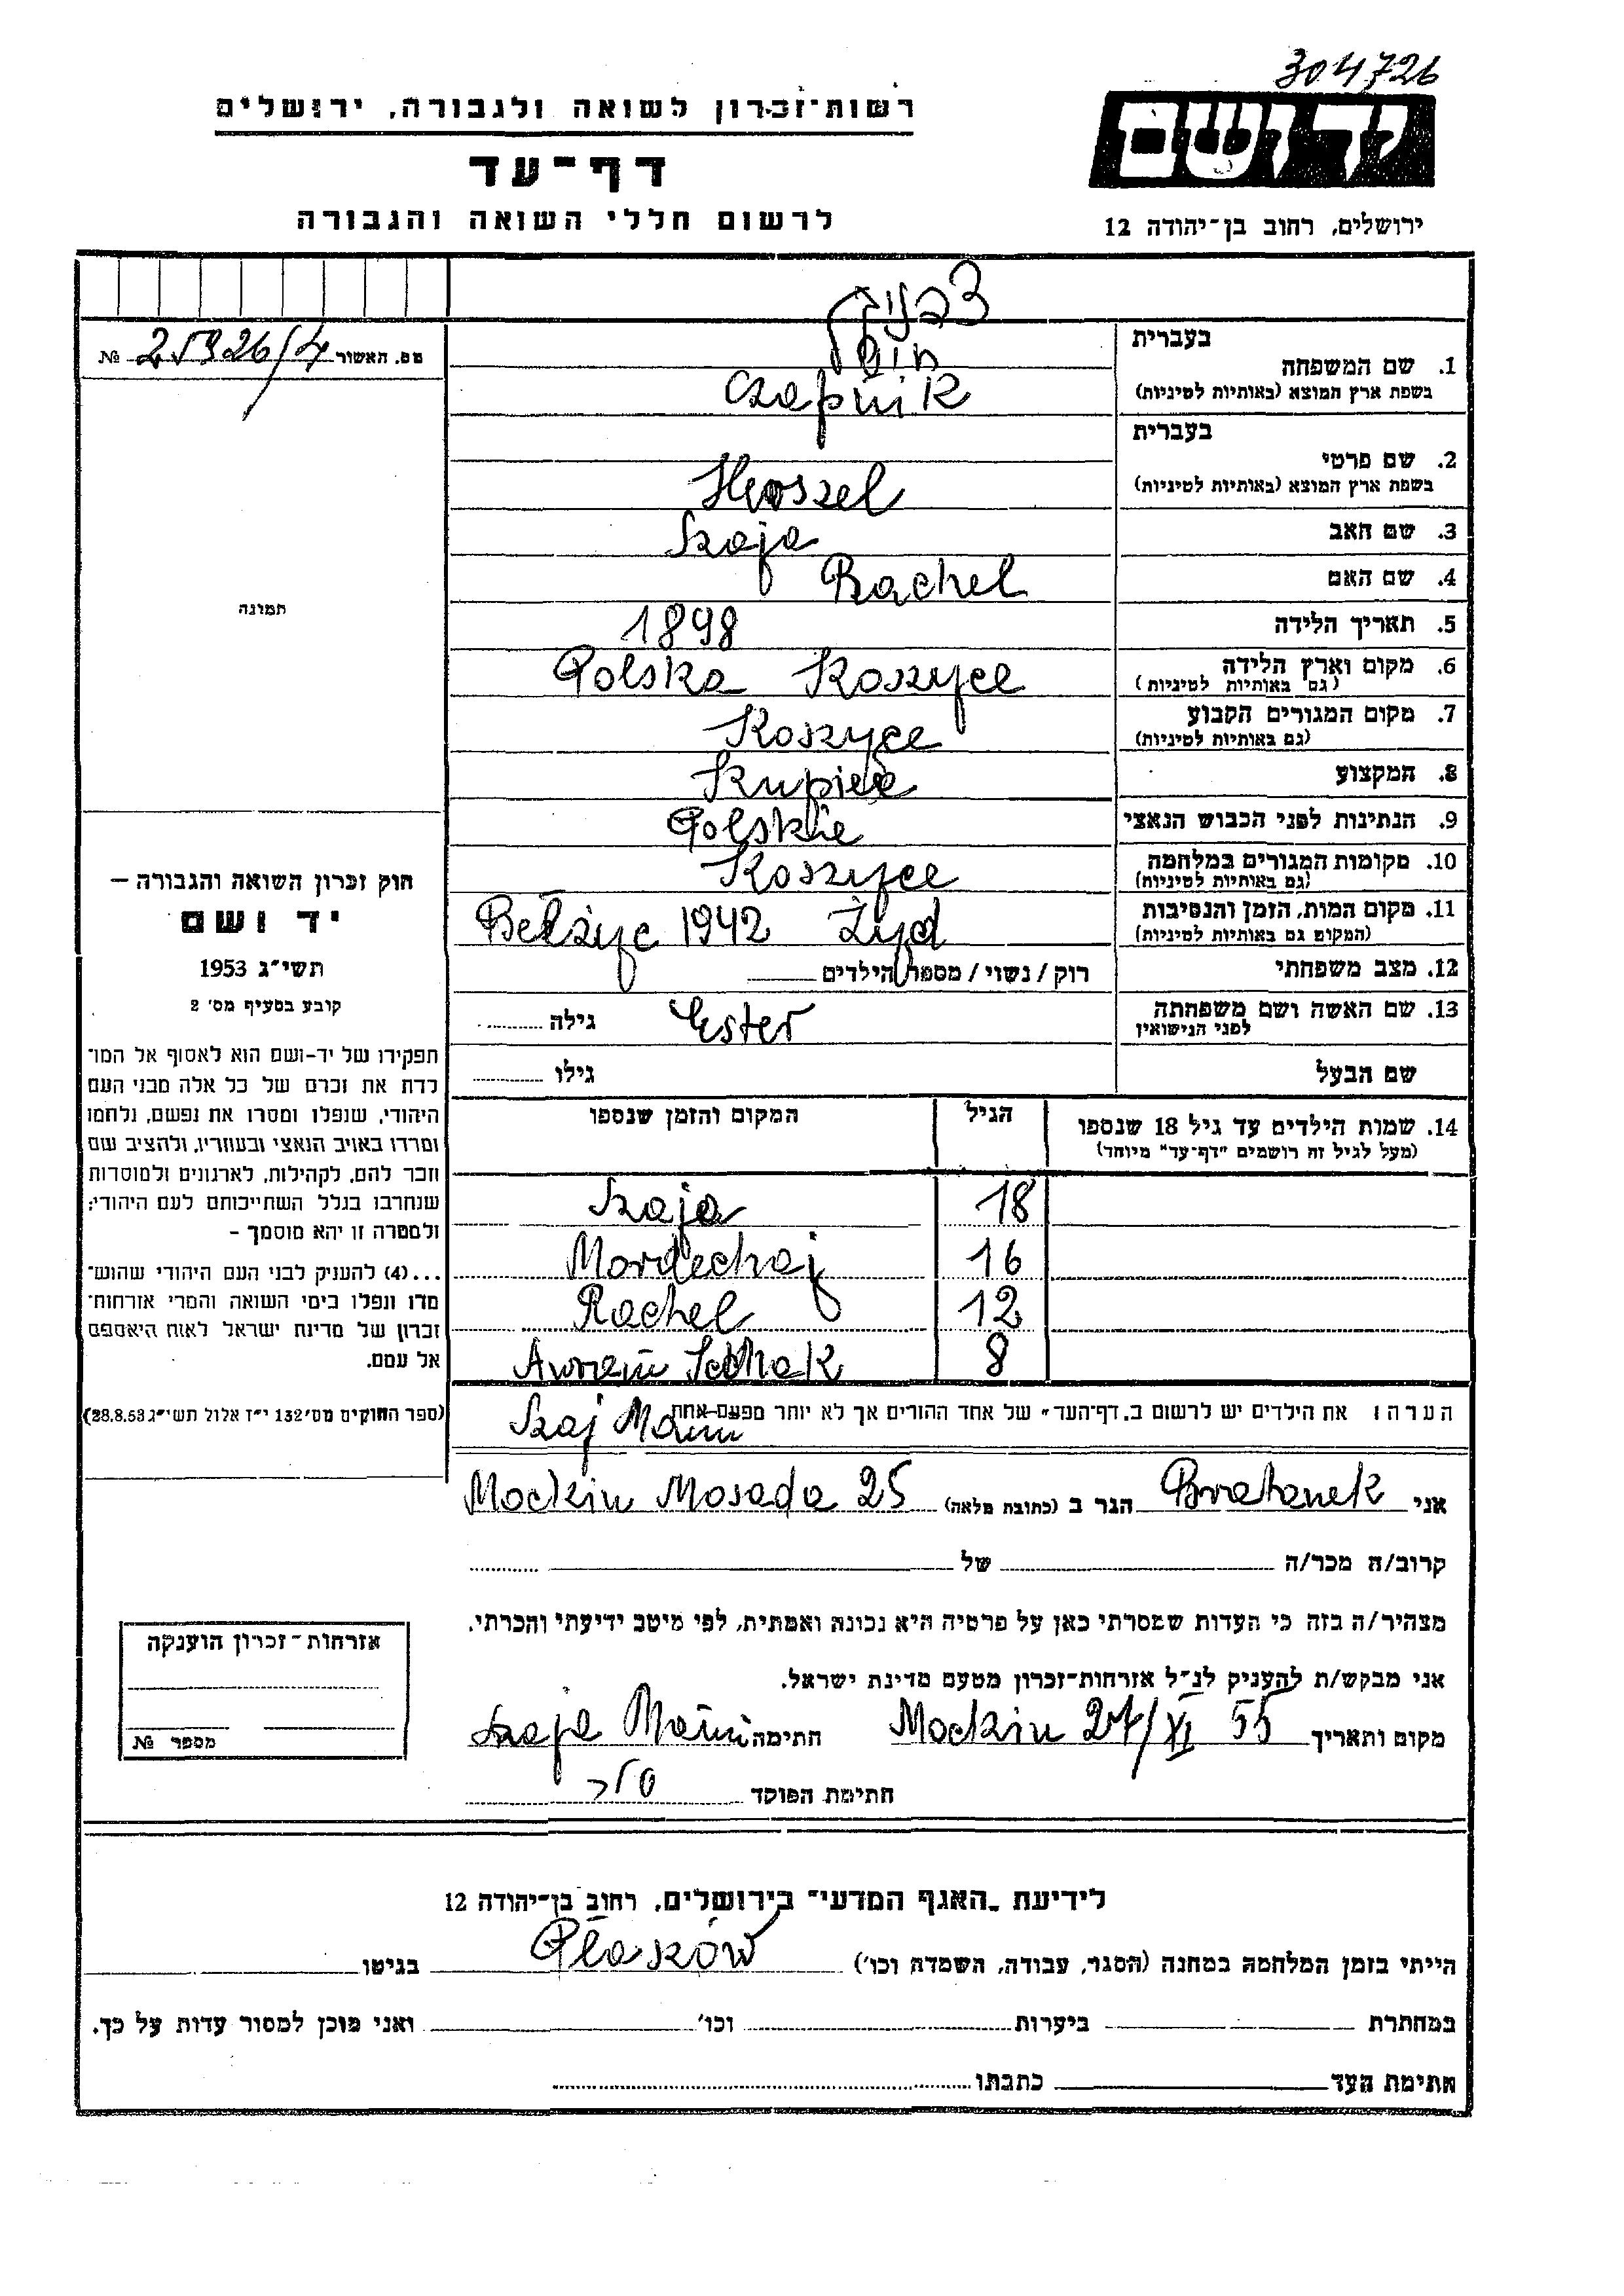 304726
רשות־זכרון לשואה ולגבורה, ירושלים
יד ושם
דף־עד
לרשום חללי השואה והגבורה
ירושלים, רחוב בן־יהודה 12
בעברית
1. שם המשפחה
(בשפת ארץ המוצא (באותיות לטיניות
Czapnik
מס. האשור № 25926/4
בעברית
2. שם פרטי
(בשפת ארץ המוצא (באותיות לטיניות
Herszel
3. שם האב Szaja
4. שם האם Rachel
תמונה
5. תאריך הלידה 1898
6. מקום וארץ הלידה Polska Koszyce
(גם באותיות לטיניות)
7. מקום המגורים הקבוע Koszyce
(גם באותיות לטיניות)
8. המקצוע Kupiec
9. הנתינות לפני הכבוש הנאצי Polskie
10. מקומות המגורים במלחמה Koszyce
(גם באותיות לטיניות)
11. מקום המות, הזמן והנסיבות Bełżyc 1942 Żyd
(המקום גם באותיות לטיניות)
12. מצב משפחתי רוק / נשוי / מספר הילדים
13. שם האשה ושם משפחתה Ester גילה
לפני הנישואין
שם הבעל גילו
14. שמות הילדים עד גיל 18 שנספו הגיל המקום והזמן שנספו
(מעל לגיל זה רושמים "דף־עד" מיוחד)
18 Szaja
16 Mordechaj
12 Rachel
8 Awrem
הערה: את הילדים יש לרשום ב„דף־העד" של אחד ההורים אך לא יותר מפעם־אחת
חוק זכרון השואה והגבורה –
יד ושם
תשי"ג 1953
קובע בסעיף מס' 2
תפקידו של יד־ושם הוא לאסוף אל המו־
לדת את זכרם של כל אלה מבני העם
היהודי, שנפלו ומסרו את נפשם, נלחמו
ומרדו באויב הנאצי ובעוזריו, ולהציב שם
וזכר להם, לקהילות, לארגונים ולמוסדות
שנחרבו בגלל השתייכותם לעם היהודי;
ולמטרה זו יהא מוסמך –
...(4) להעניק לבני העם היהודי שהוש־
מדו ונפלו בימי השואה והמרי אזרחות־
זכרון של מדינת ישראל לאות היאספם
אל עמם.
(ספר החוקים מס' 132 י"ז אלול תשי"ג 28.8.53)
אני Bratanek הגר ב (כתובת מלאה) Mosada 25
קרוב/ה מכר/ה של
מצהיר/ה בזה כי העדות שמסרתי כאן על פרטיה היא נכונה ואמתית, לפי מיטב ידיעתי והכרתי.
אני מבקש/ת להעניק לנ"ל אזרחות־זכרון מטעם מדינת ישראל.
מקום ותאריך 27/XI 55 חתימה Szaja
חתימת הפוקד
אזרחות־זכרון הוענקה
מספר №
לידיעת „האגף המדעי" בירושלים, רחוב בן־יהודה 12
הייתי בזמן המלחמה במחנה (הסגר, עבודה, השמדה וכו') Płaszków בגיטו
במחתרת ביערות וכו' ואני מוכן למסור עדות על כך.
חתימת העד כתבתו